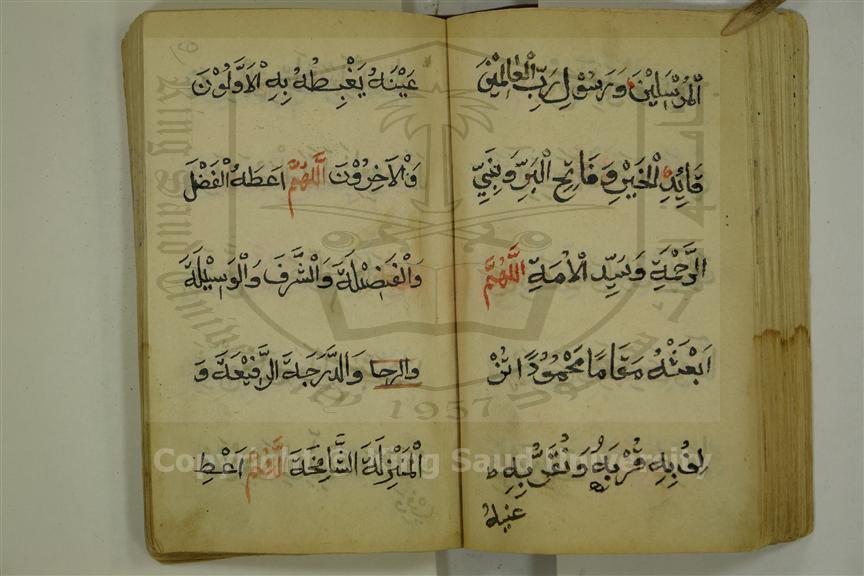 الْمُرْسَلِيْنَ وَرَسُوْلِ رَبِّ الْعَالَمِيْنَ
قَائِدِ الْخَيْرِ وَفَاتِحِ الْبَرِّ وَنَبِيِّ
الرَّحْمَةِ وَسَيِّدِ الْاُمَةِ اَللّٰهُمَّ
اَبْعَثْهُ مَقَامًا مَحْمُوْدًا تُزْ
لِفُ بِهِ قُرْبَهُ وَتُقَرُّ بِهِ
عَيْنَهُ
عَيْنَهُ يَغْبِطُهُ بِهِ الْاَوَّلُوْنَ
وَالْاٰخِرُوْنَ اَللّٰهُمَّ اَعْطِهِ الْفَضْلَ
وَالْفَضِيْلَةَ وَالشَّرَفَ وَالْوَسِيْلَةَ
وَالدَّرَجَةَ الرَّفِيْعَةَ وَ
الْمَنْزِلَةَ الشَّامِخَةَ اَللّٰهُمَّ اَعْطِ
Copyright © King Saud University
1957